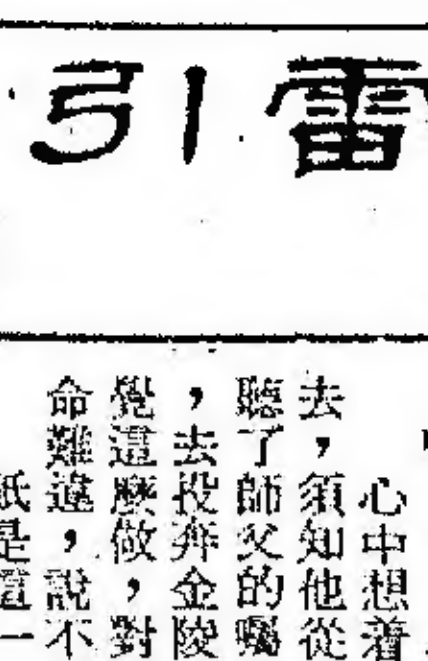 雷引
心中想着
去，須知他從
聽了，師父的囑
，去投奔金陵
覺這麼做，對
命難違，說不
祇是這一